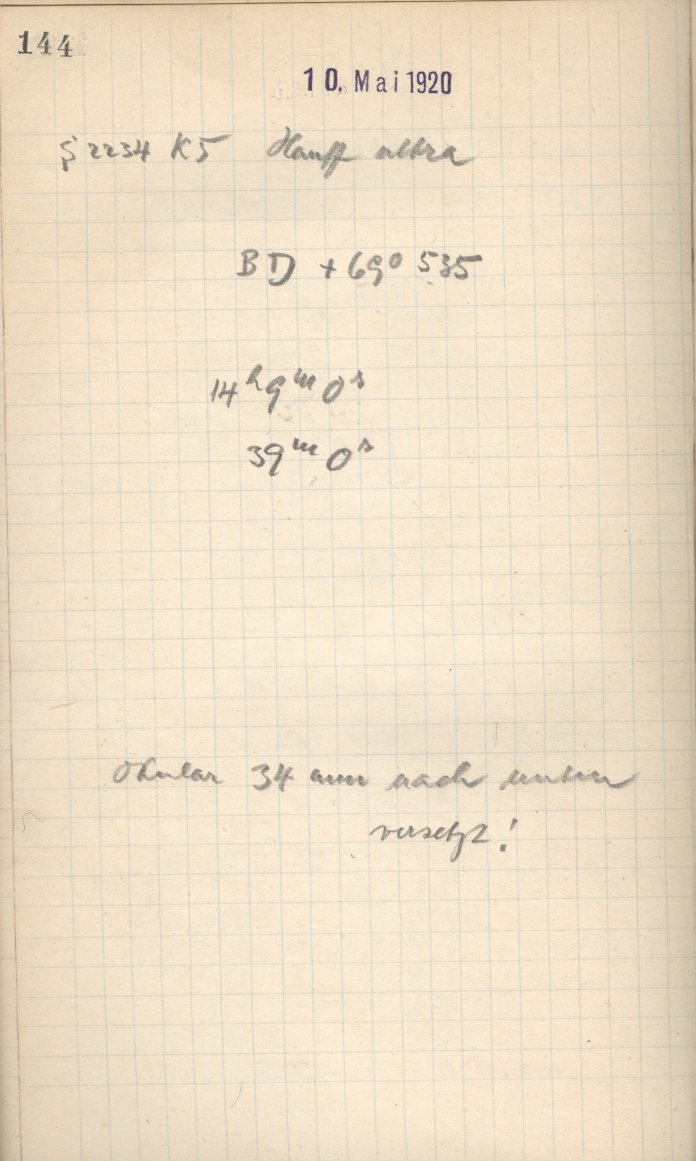 144
10. Mai 1920
S 2234 K5 Hauff ultra
BD +69° 535
14ʰ 9ᵐ 0ˢ
39ᵐ 0ˢ
Okular 34 mm nach unten
versetzt!